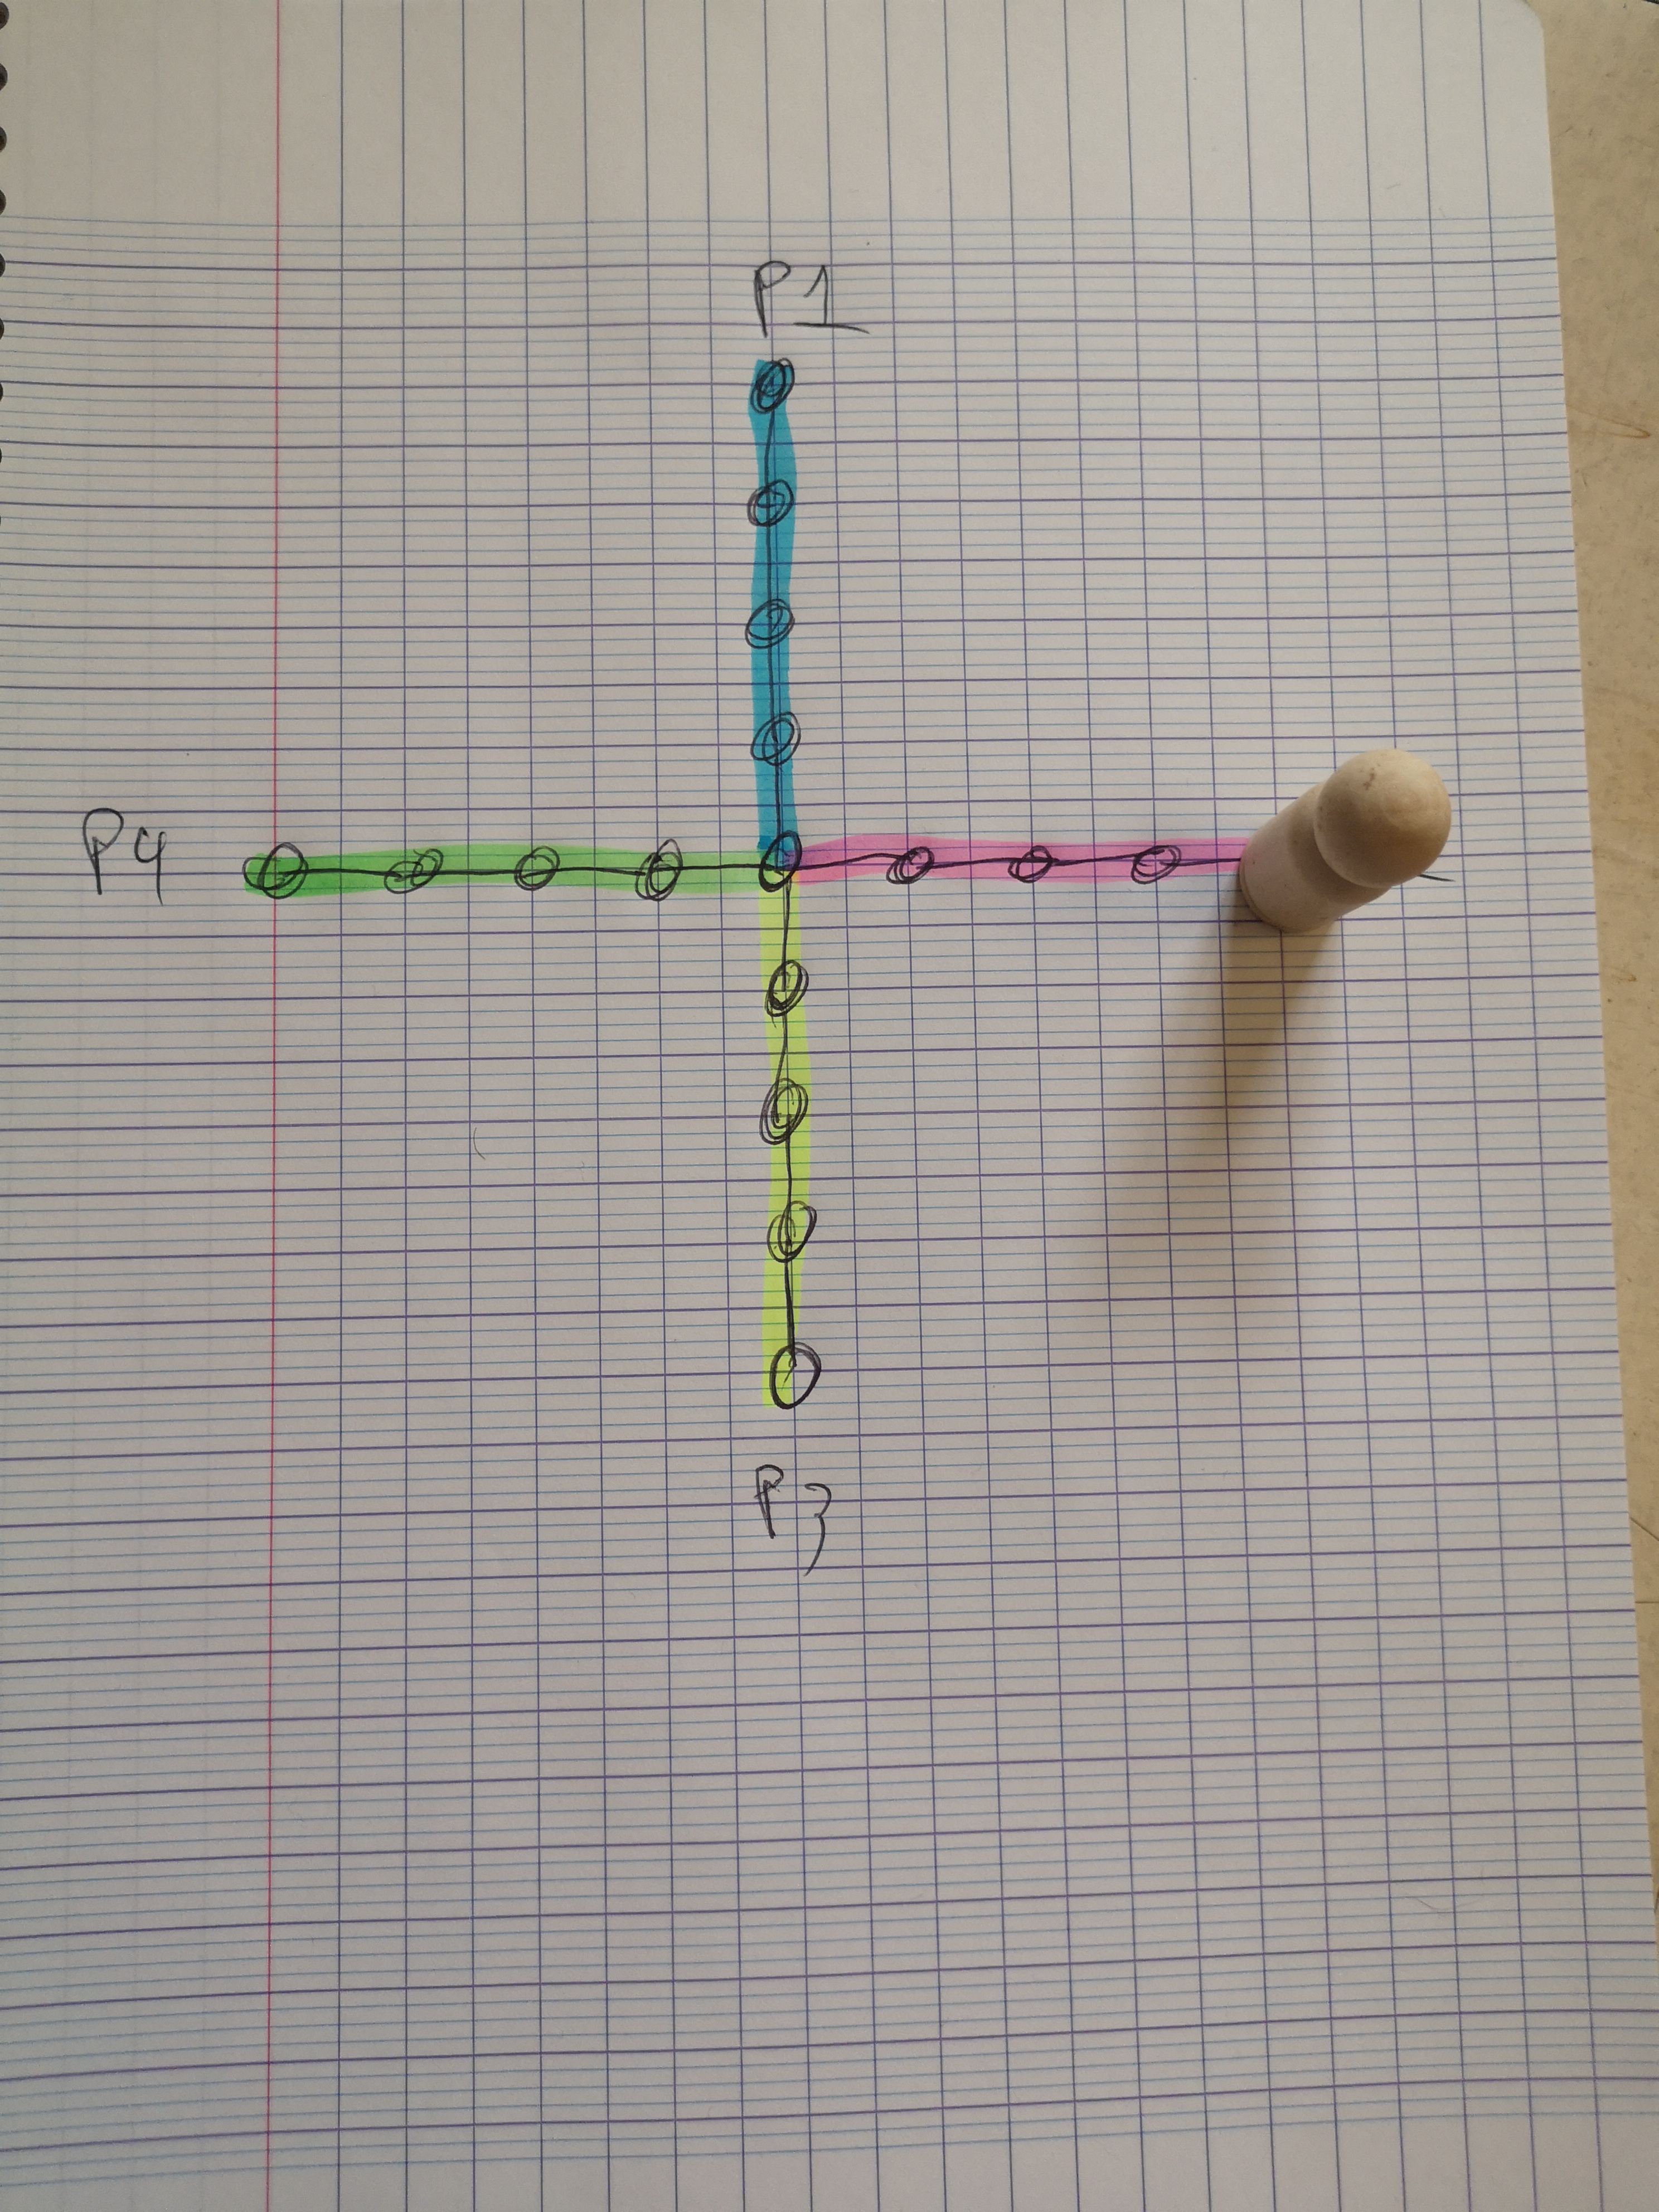 P1
P4
P3